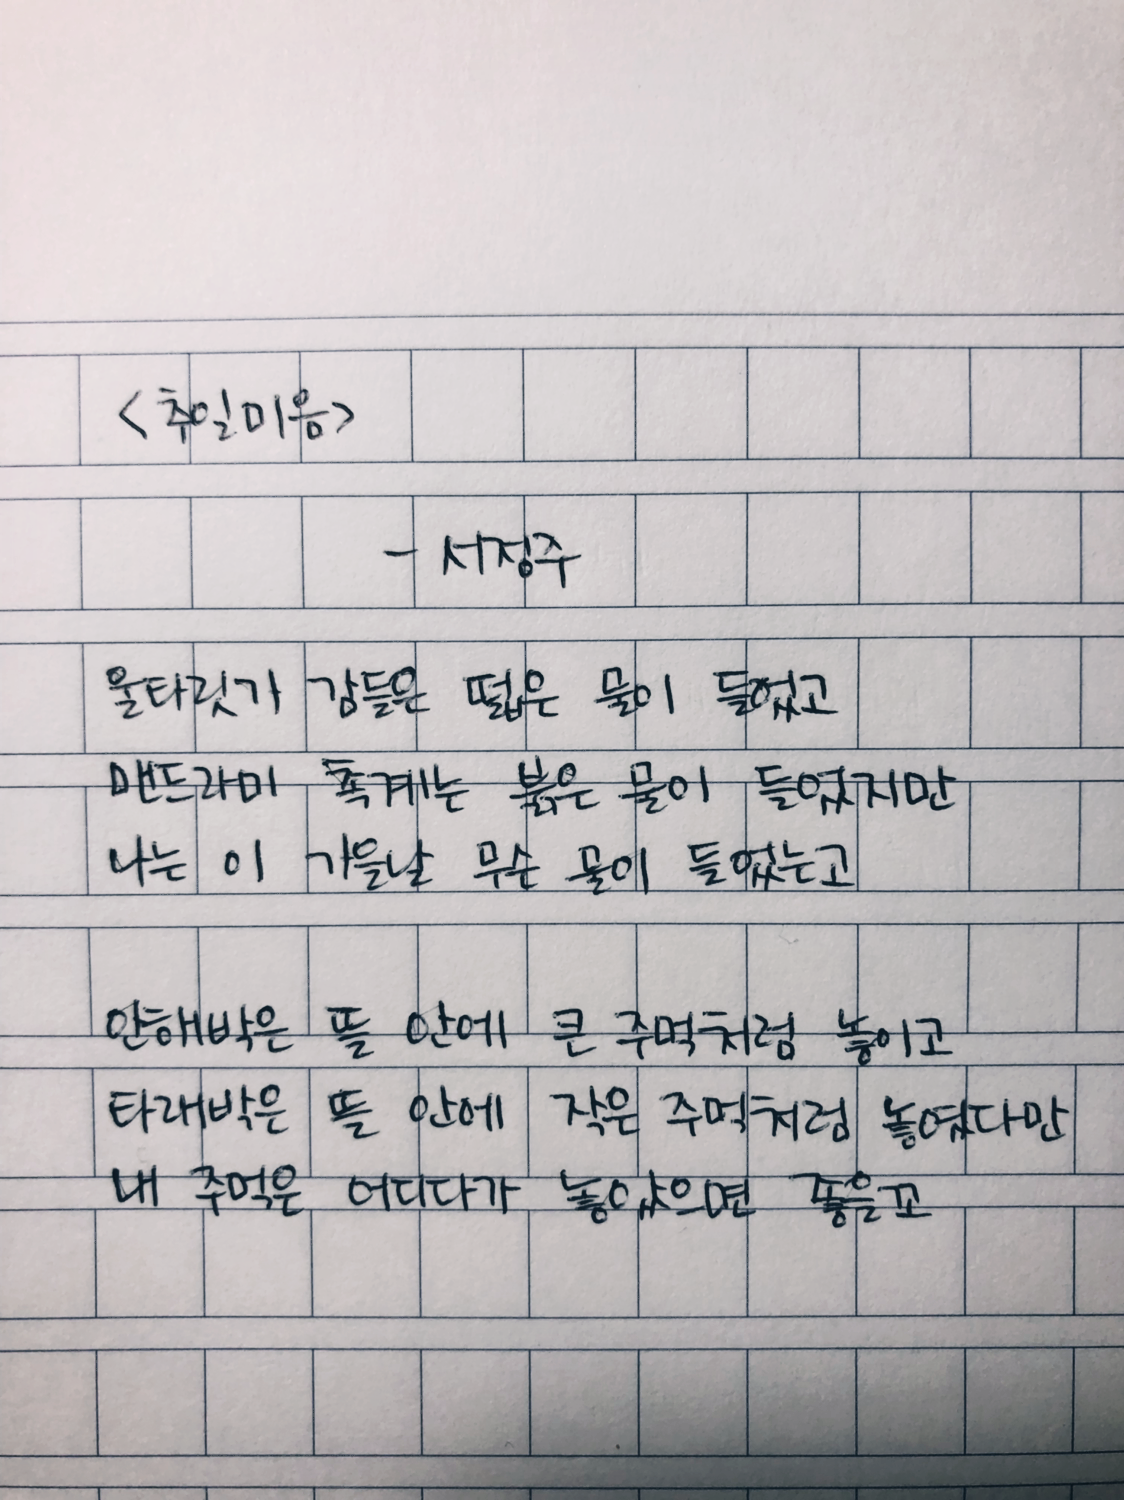 <추일미음>
- 서정주
울타릿가 감들은 떫은 물이 들었고
맨드라미 촉계는 붉은 물이 들었지만
나는 이 가을날 무슨 물이 들었는고
안해박은 뜰 안에 큰 주먹처럼 놓이고
타래박은 뜰 안에 작은 주먹처럼 놓였다만
내 주먹은 어디다가 놓았으면 좋을꼬